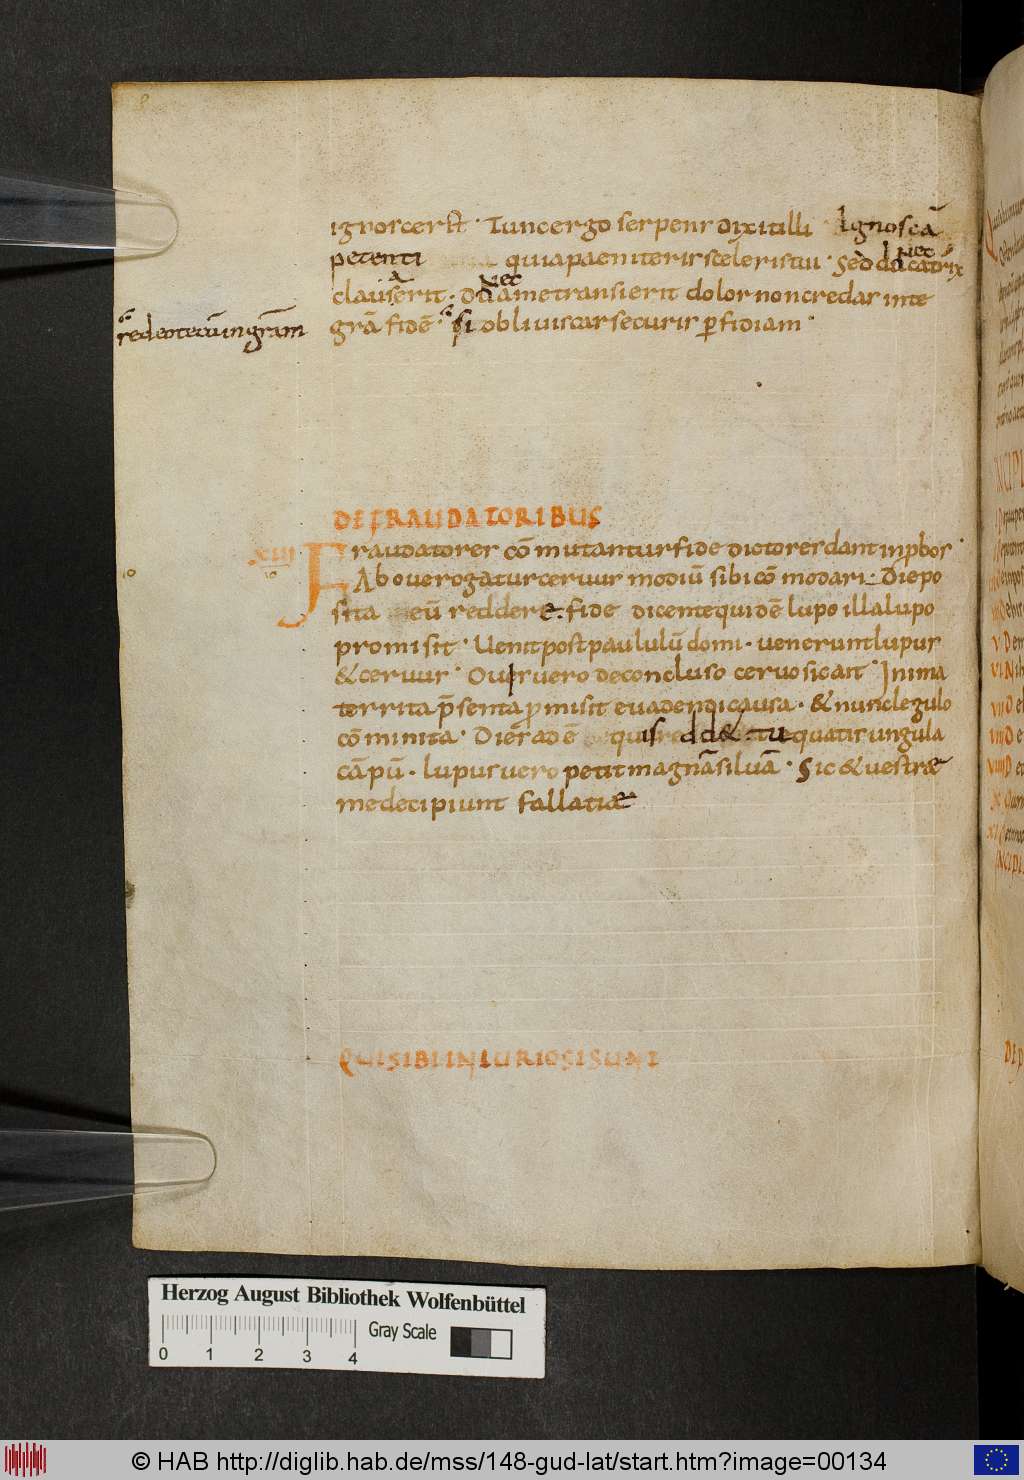 ignoscer&. Tunc ergo serpens dixit illi Ignoscā
petenti quia paeniteris sceleris tui. Sed da catrix
nec
clauserit. da a me transierit dolor non credas inte
a
nec
grā fidē. si obliviscar securis pfidiam.
redeo tecū in grām
DE FRAUDATORIBUS
XIII
Fraudatores cōmutantur fide dictores dant inpbos.
Ab ove rogatur cervus modiū sibi cōmodari. Die po
sita eū reddere. fide dicente quidē lupo illa lupo
promisit. Venit post paululū domi. venerunt lupus
& cervus. Ovis vero de concluso cervo sic ait. Inima
territa p̄senta promisit evadendi causa. & nunc legulo
cōminita. Diēr ad ē quis redd& tu quatis ungula
cāpū. lupus vero petit magnā silvā. Sic & vestræ
me decipiunt fallatiæ
QUI SIBI INIURIOSI SUNT
Herzog August Bibliothek Wolfenbüttel
Gray Scale
0 1 2 3 4
© HAB http://diglib.hab.de/mss/148-gud-lat/start.htm?image=00134